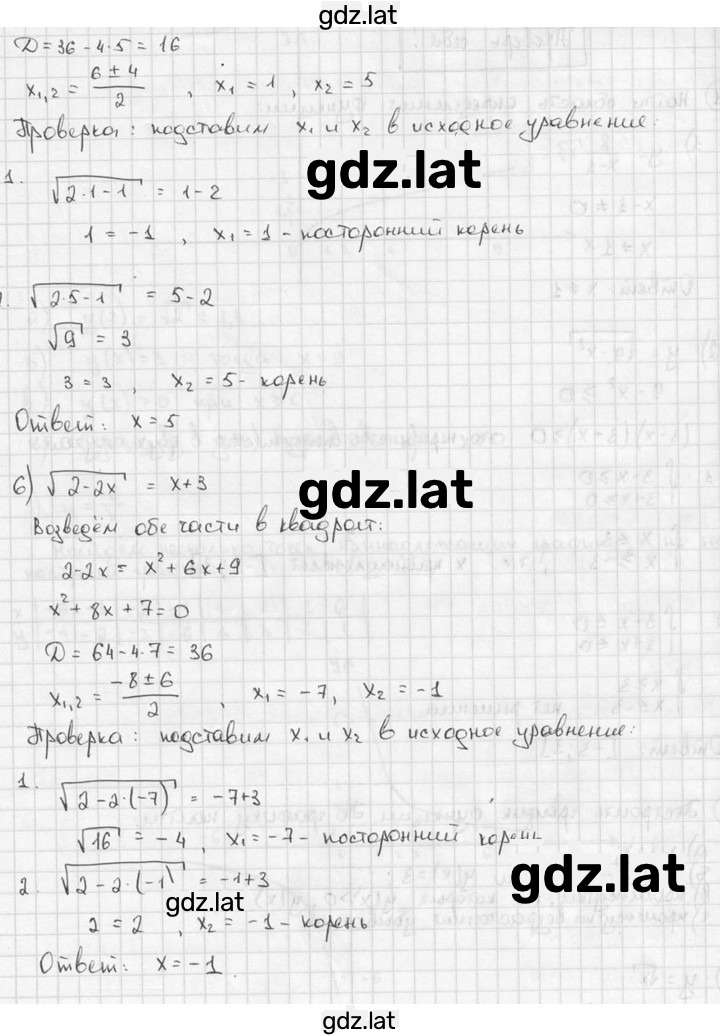 gdz.lat
D = 36 - 4·5 = 16
x₁,₂ = (6 ± 4)/2 , x₁ = 1 , x₂ = 5
Проверка: подставим x₁ и x₂ в исходное уравнение:
gdz.lat
1. √(2·1-1) = 1-2
1 = -1 , x₁ = 1 - посторонний корень
√(2·5-1) = 5-2
√9 = 3
3 = 3 , x₂ = 5 - корень
Ответ: x = 5
gdz.lat
б) √(2-2x) = x+3
Возведём обе части в квадрат:
2-2x = x²+6x+9
x²+8x+7=0
D = 64-4·7 = 36
x₁,₂ = (-8 ± 6)/2 , x₁ = -7, x₂ = -1
Проверка: подставим x₁ и x₂ в исходное уравнение:
1. √(2-2·(-7)) = -7+3
√16 = -4 , x₁ = -7 - посторонний корень
gdz.lat
2. √(2-2·(-1)) = -1+3
gdz.lat
2 = 2 , x₂ = -1 - корень
Ответ: x = -1.
gdz.lat